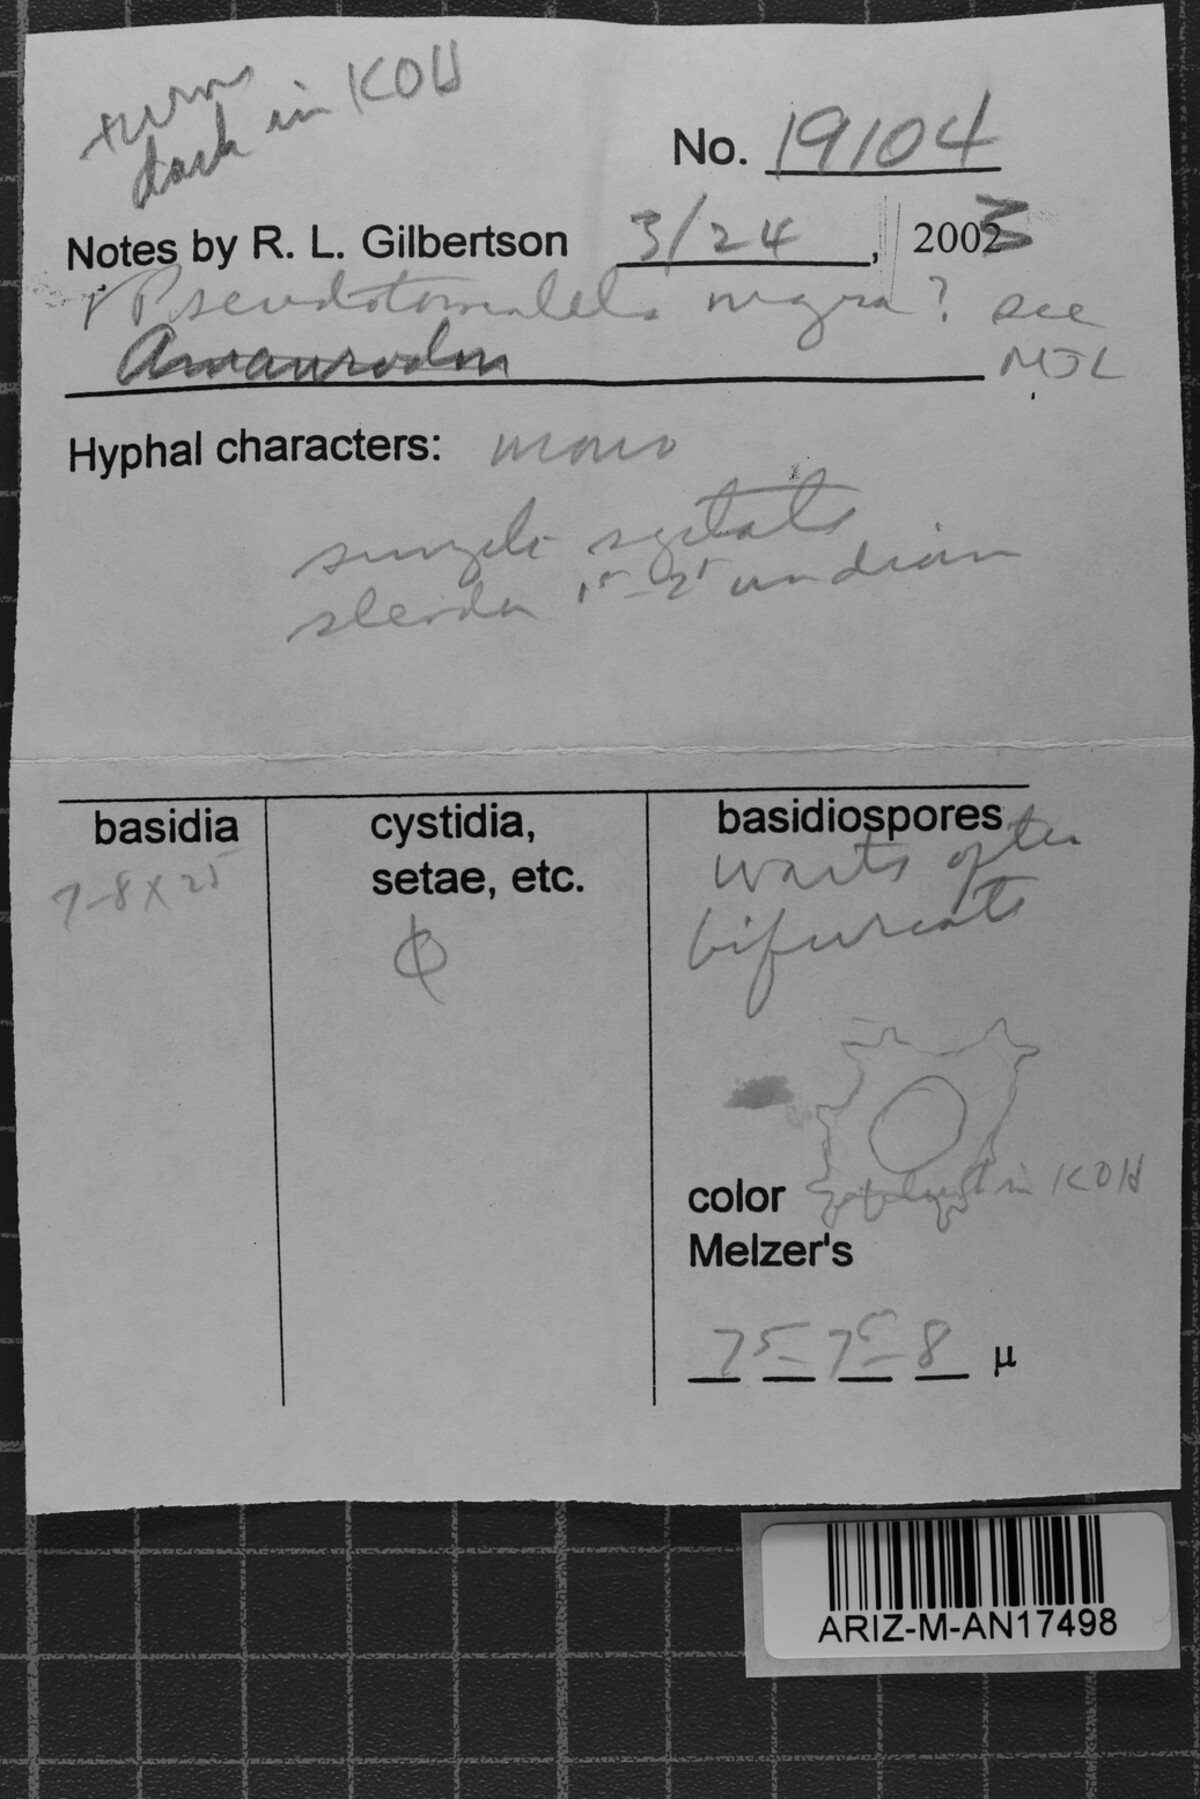 turns
dark in KOH
No. 19104
Notes by R. L. Gilbertson 3/24, 2003
Pseudotomentella nigra? see
Amaurodon MJL
Hyphal characters: mono
simple septate
slender 1⁵-2⁵ um diam
basidia
7-8 X 25
cystidia,
setae, etc.
ϕ
basidiospores
warts often
bifurcate
color in KOH
Melzer's
7⁵ - 7⁵ - 8 µ
ARIZ-M-AN17498